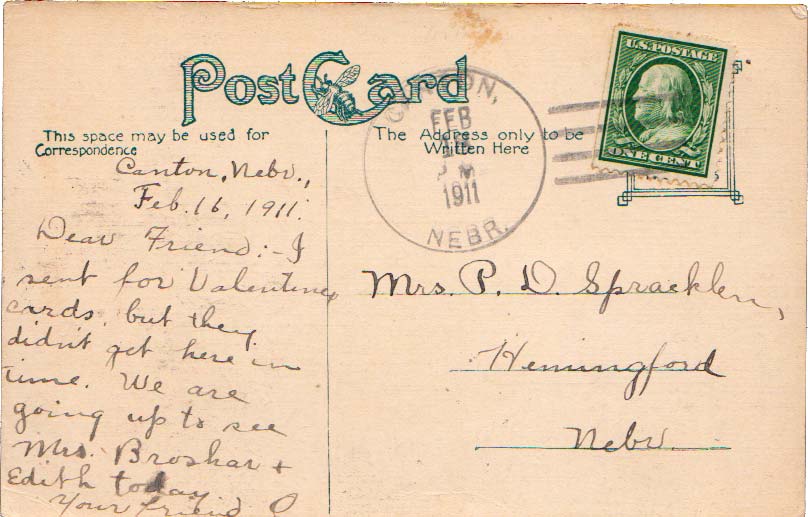 Post Card
This space may be used for
Correspondence
The Address only to be
Written Here
U.S. POSTAGE
ONE CENT
CANTON,
FEB
M
1911
NEBR.
Canton, Nebr.,
Feb. 16, 1911.
Dear Friend:- I
sent for Valentine
cards, but they
didn't get here in
time. We are
going up to see
Mrs. Broshar +
Edith today
Your friend
Mrs. P. D. Spracklen,
Hemingford
Nebr.